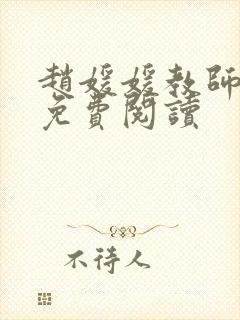 趙媛媛教師
免費閱讀
不待人